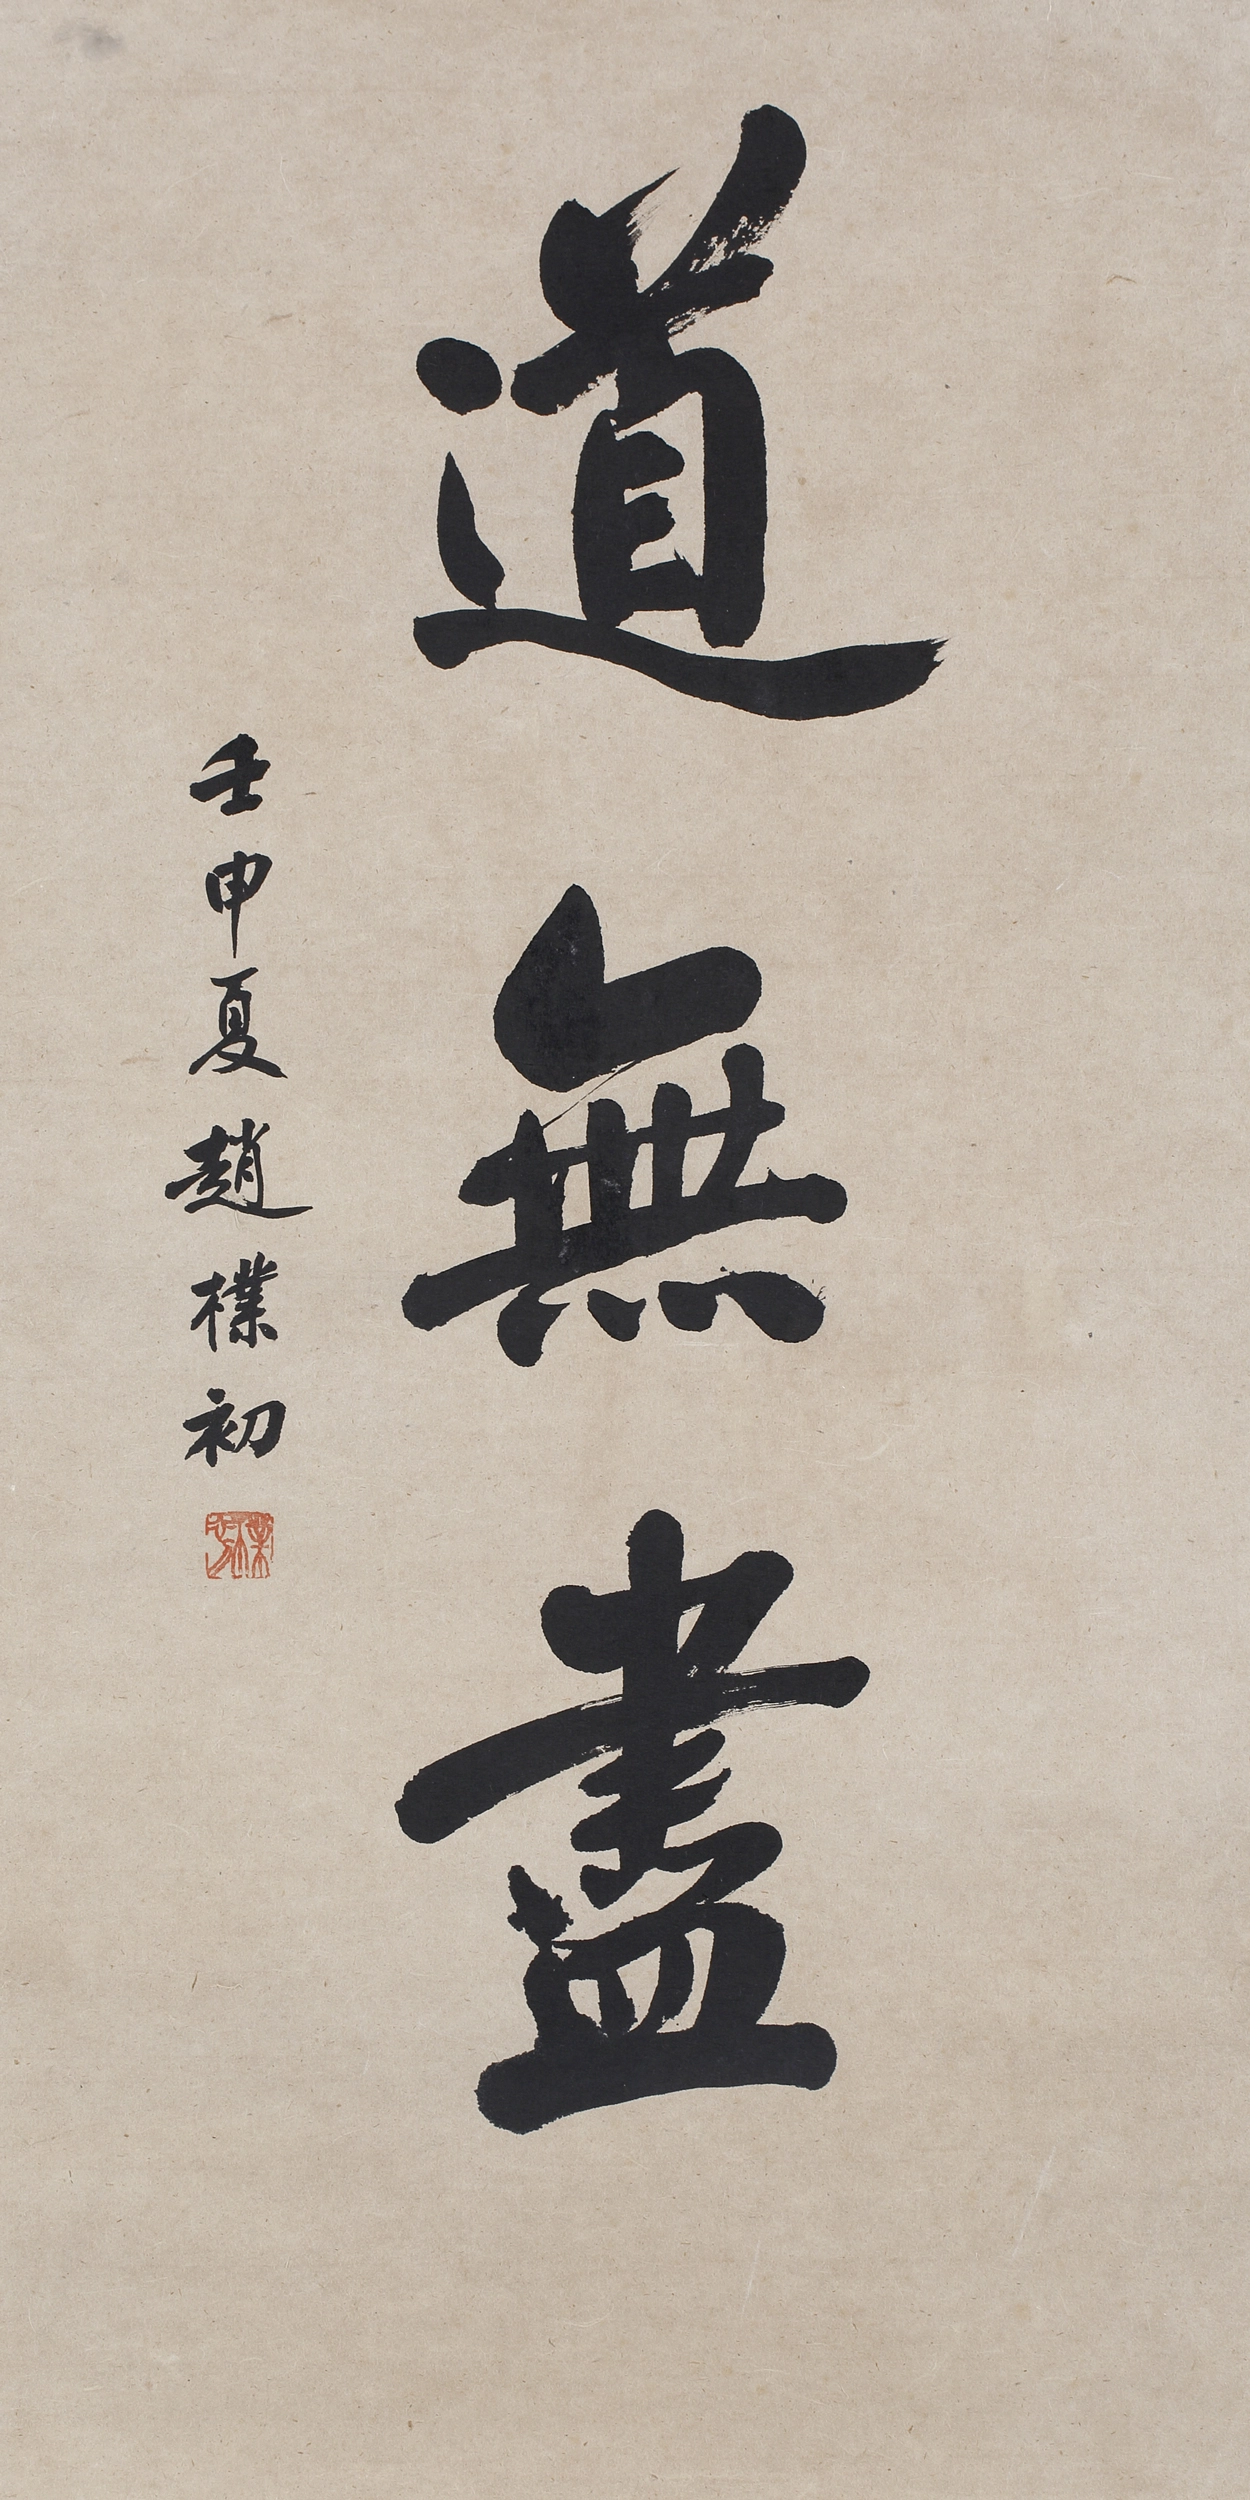 道無盡
壬申夏趙樸初
樸初